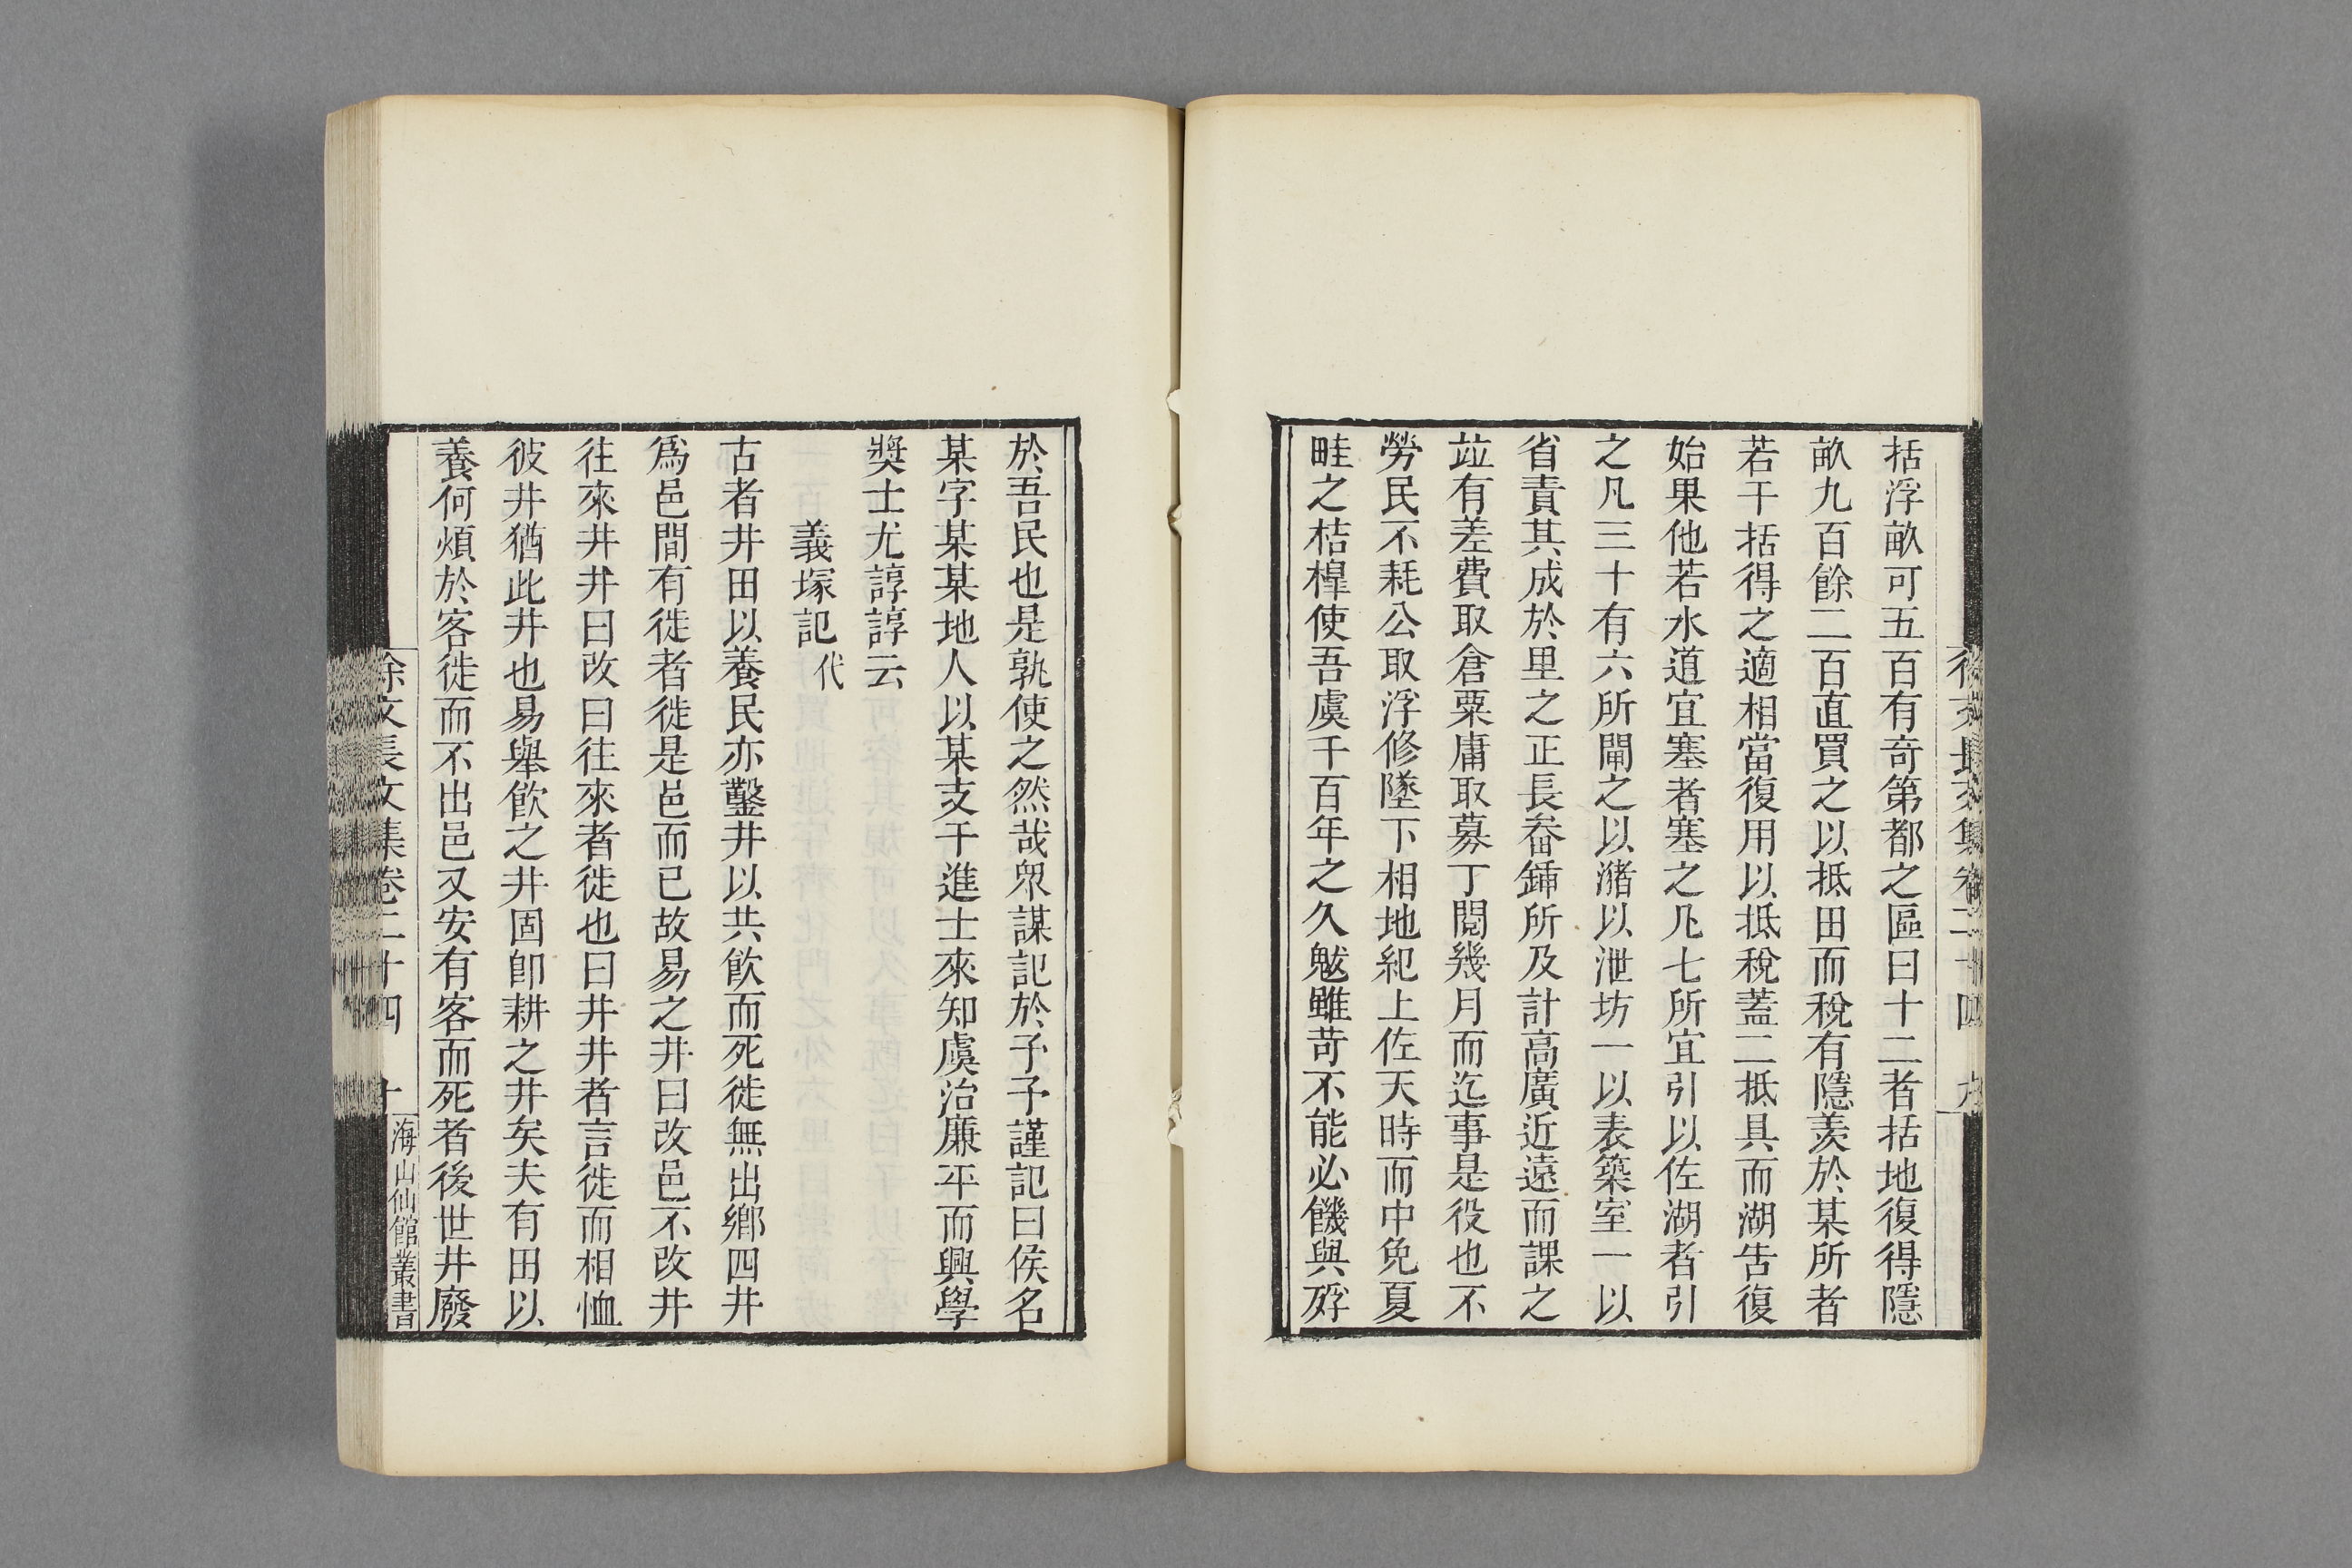 括浮畝可五百有奇第都之區曰十二者括地復得隱
畝九百餘二百直買之以抵田而稅有隱羨於某所者
若干括得之適相當復用以抵稅蓋二抵具而湖告復
始果他若水道宜塞者塞之凡七所宜引以佐湖者引
之凡三十有六所閘之以瀦以泄坊一以表築室一以
省責其成於里之正長畚鍤所及計高廣近遠而課之
竝有差費取倉粟庸取募丁閱幾月而迄事是役也不
勞民不耗公取浮修墜下相地紀上佐天時而中免夏
畦之桔槔使吾虞千百年之久魃雖苛不能必饑與殍
於吾民也是孰使之然哉衆謀記於予予謹記曰侯名
某字某某地人以某支干進士來知虞治廉平而興學
獎士尤諄諄云
義塚記代
古者井田以養民亦鑿井以共飲而死徙無出鄉四井
爲邑間有徙者徙是邑而已故易之井曰改邑不改井
往來井井曰改曰往來者徙也曰井井者言徙而相恤
彼井猶此井也易舉飲之井固卽耕之井矣夫有田以
養何煩於客徙而不出邑又安有客而死者後世井廢
徐文長文集卷二十四 十
海山仙館叢書